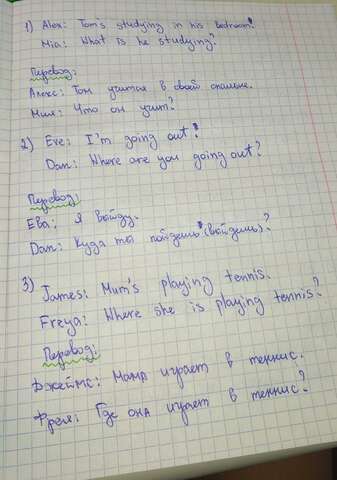 1) Alex: Tom's studying in his bedroom!
Mia: What is he studying?
Перевод:
Алекс: Том учится в своей спальне.
Мия: Что он учит?
2) Eve: I'm going out!
Dan: Where are you going out?
Перевод:
Ева: Я выйду.
Дан: Куда ты пойдешь (выйдешь)?
3) James: Mum's playing tennis.
Freya: Where she is playing tennis?
Перевод:
Джеймс: Мама играет в теннис.
Фрея: Где она играет в теннис?